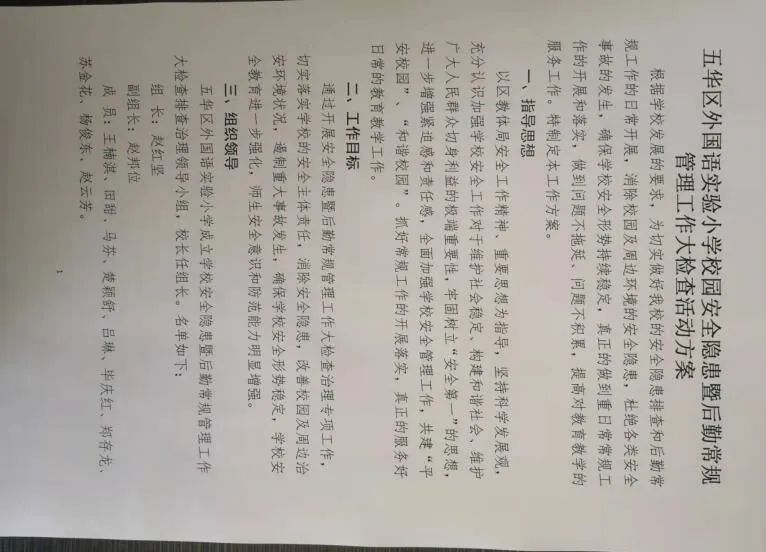 五华区外国语实验小学校园安全隐患暨后勤常规
管理工作大检查活动方案
根据学校发展的要求，为切实做好我校的安全隐患排查和后勤常
规工作的日常开展，消除校园及周边环境的安全隐患，杜绝各类安全
事故的发生，确保学校安全形势持续稳定，真正的做到重日常常规工
作的开展和落实，做到问题不拖延、问题不积累，提高对教育教学的
服务工作。特制定本工作方案。
一、指导思想
以区教体局安全工作精神、重要思想为指导，坚持科学发展观，
充分认识加强学校安全工作对于维护社会稳定、构建和谐社会、维护
广大人民群众切身利益的极端重要性，牢固树立“安全第一”的思想，
进一步增强紧迫感和责任感，全面加强学校安全管理工作，共建“平
安校园”、“和谐校园”。抓好常规工作的开展落实，真正的服务好
日常的教育教学工作。
二、工作目标
通过开展安全隐患暨后勤常规管理工作大检查治理专项工作，
切实落实学校的安全主体责任，消除安全隐患，改善校园及周边治
安环境状况，遏制重大事故发生，确保学校安全形势稳定，学校安
全教育进一步强化，师生安全意识和防范能力明显增强。
三、组织领导
五华区外国语实验小学成立学校安全隐患暨后勤常规管理工作
大检查排查治理领导小组，校长任组长。名单如下：
组 长：赵红坚
副组长：赵邦位
成 员：王楠淇、田甜、马芬、楚颖舒、吕琳、毕庆红、郑存龙、
苏金花、杨俊东、赵云芳。
1